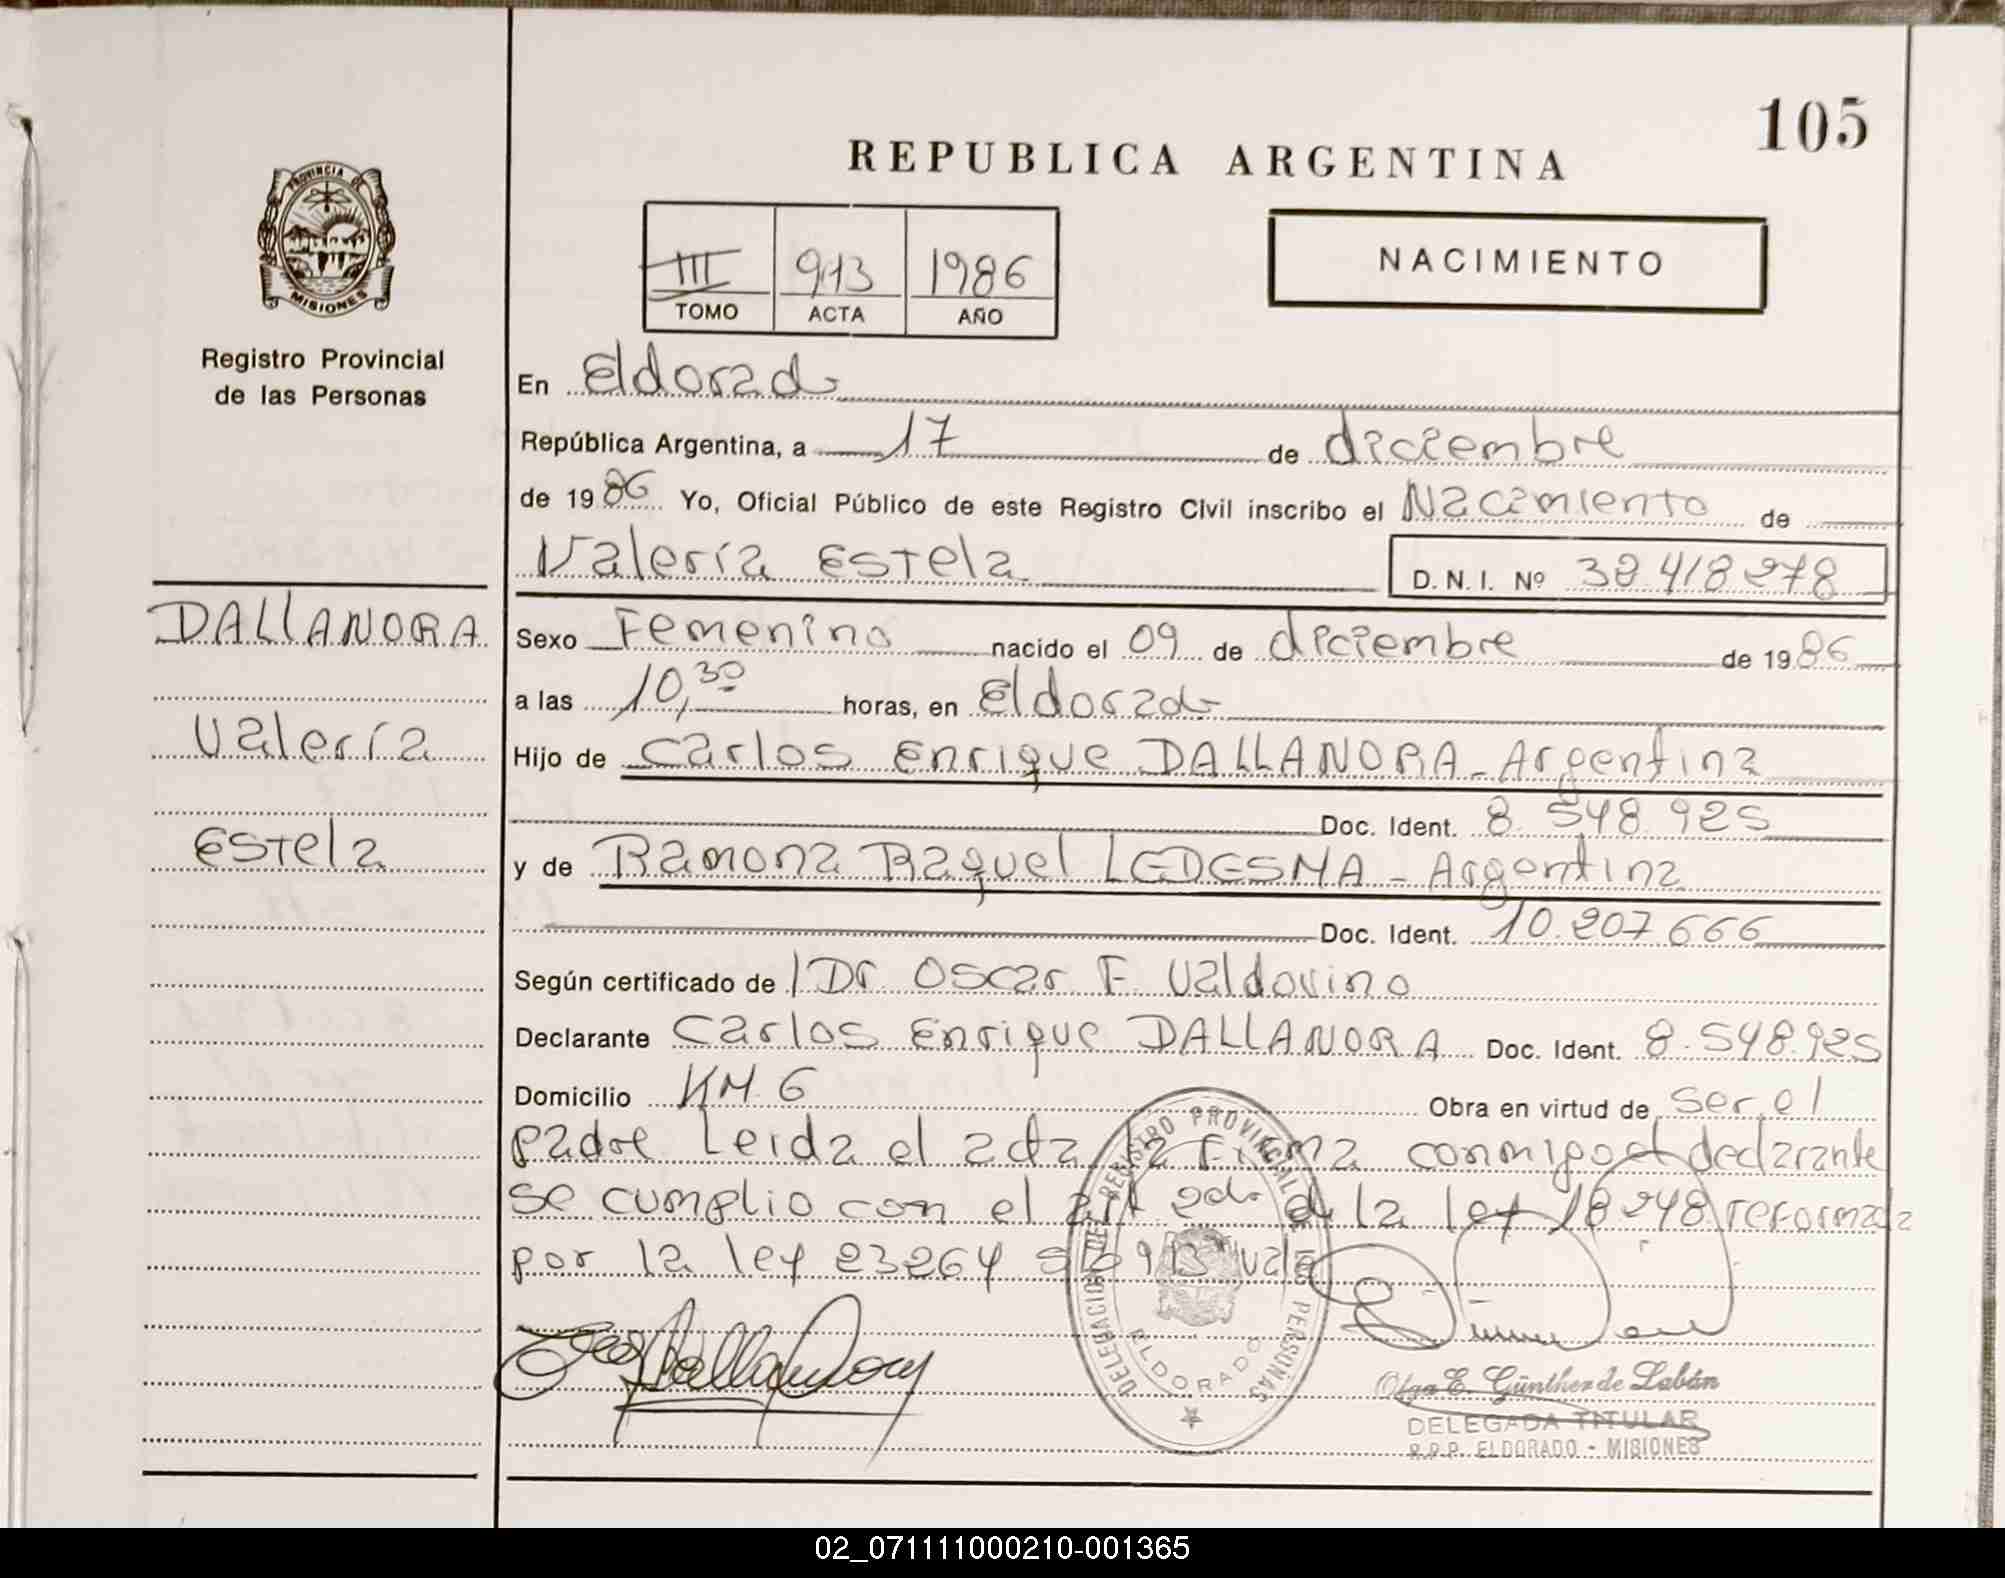 105
REPUBLICA ARGENTINA
PROVINCIA DE
MISIONES
Registro Provincial
de las Personas
III 913 1986
TOMO ACTA AÑO
NACIMIENTO
En Eldorado
República Argentina, a 17 de diciembre
de 1986 Yo, Oficial Público de este Registro Civil inscribo el Nacimiento de
Valería Estela D. N. I. Nº 32 418 278
DALLANORA
Valería
Estela
Sexo Femenino nacido el 09 de diciembre de 1986
a las 10,30 horas, en Eldorado
Hijo de Carlos Enrique DALLANORA - Argentina
Doc. Ident. 8.548.925
y de Ramona Raquel LEDESMA - Argentina
Doc. Ident. 10.207.666
Según certificado de Dr. Oscar F. Valdovino
Declarante Carlos Enrique DALLANORA Doc. Ident. 8.548.925
Domicilio KM 6 Obra en virtud de ser el
padre Leida el acta la Firma conmigo el declarante
se cumplio con el art 2do de la ley 18248 reformada
por la ley 23264 s/b 913 vale
DELEGACION DE REGISTRO PROVINCIAL DE LAS PERSONAS
ELDORADO
Olga E. Günther de Labán
DELEGADA TITULAR
R.P.P. ELDORADO - MISIONES
02_071111000210-001365